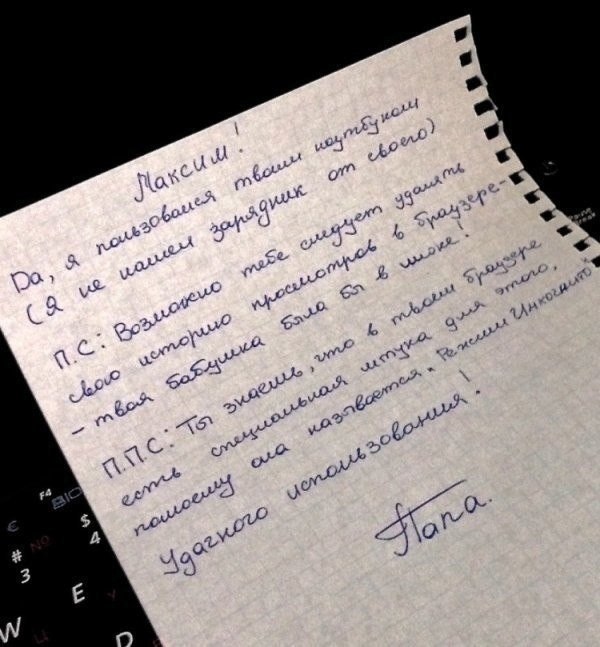 Максим!
Да, я пользовался твоим ноутбуком
(я не нашел зарядник от своего)
П.С: Возможно тебе следует удалять
свою историю просмотров в браузере-
- твоя бабушка была бы в шоке!
П.П.С: Ты знаешь, что в твоем браузере
есть специальная штука для этого,
помоему она называется „Режим Инкогнито"
Удачного использования!
Папа.
F4
BIO
€
$
#
NO
4
3
W
E
D
Ц
У